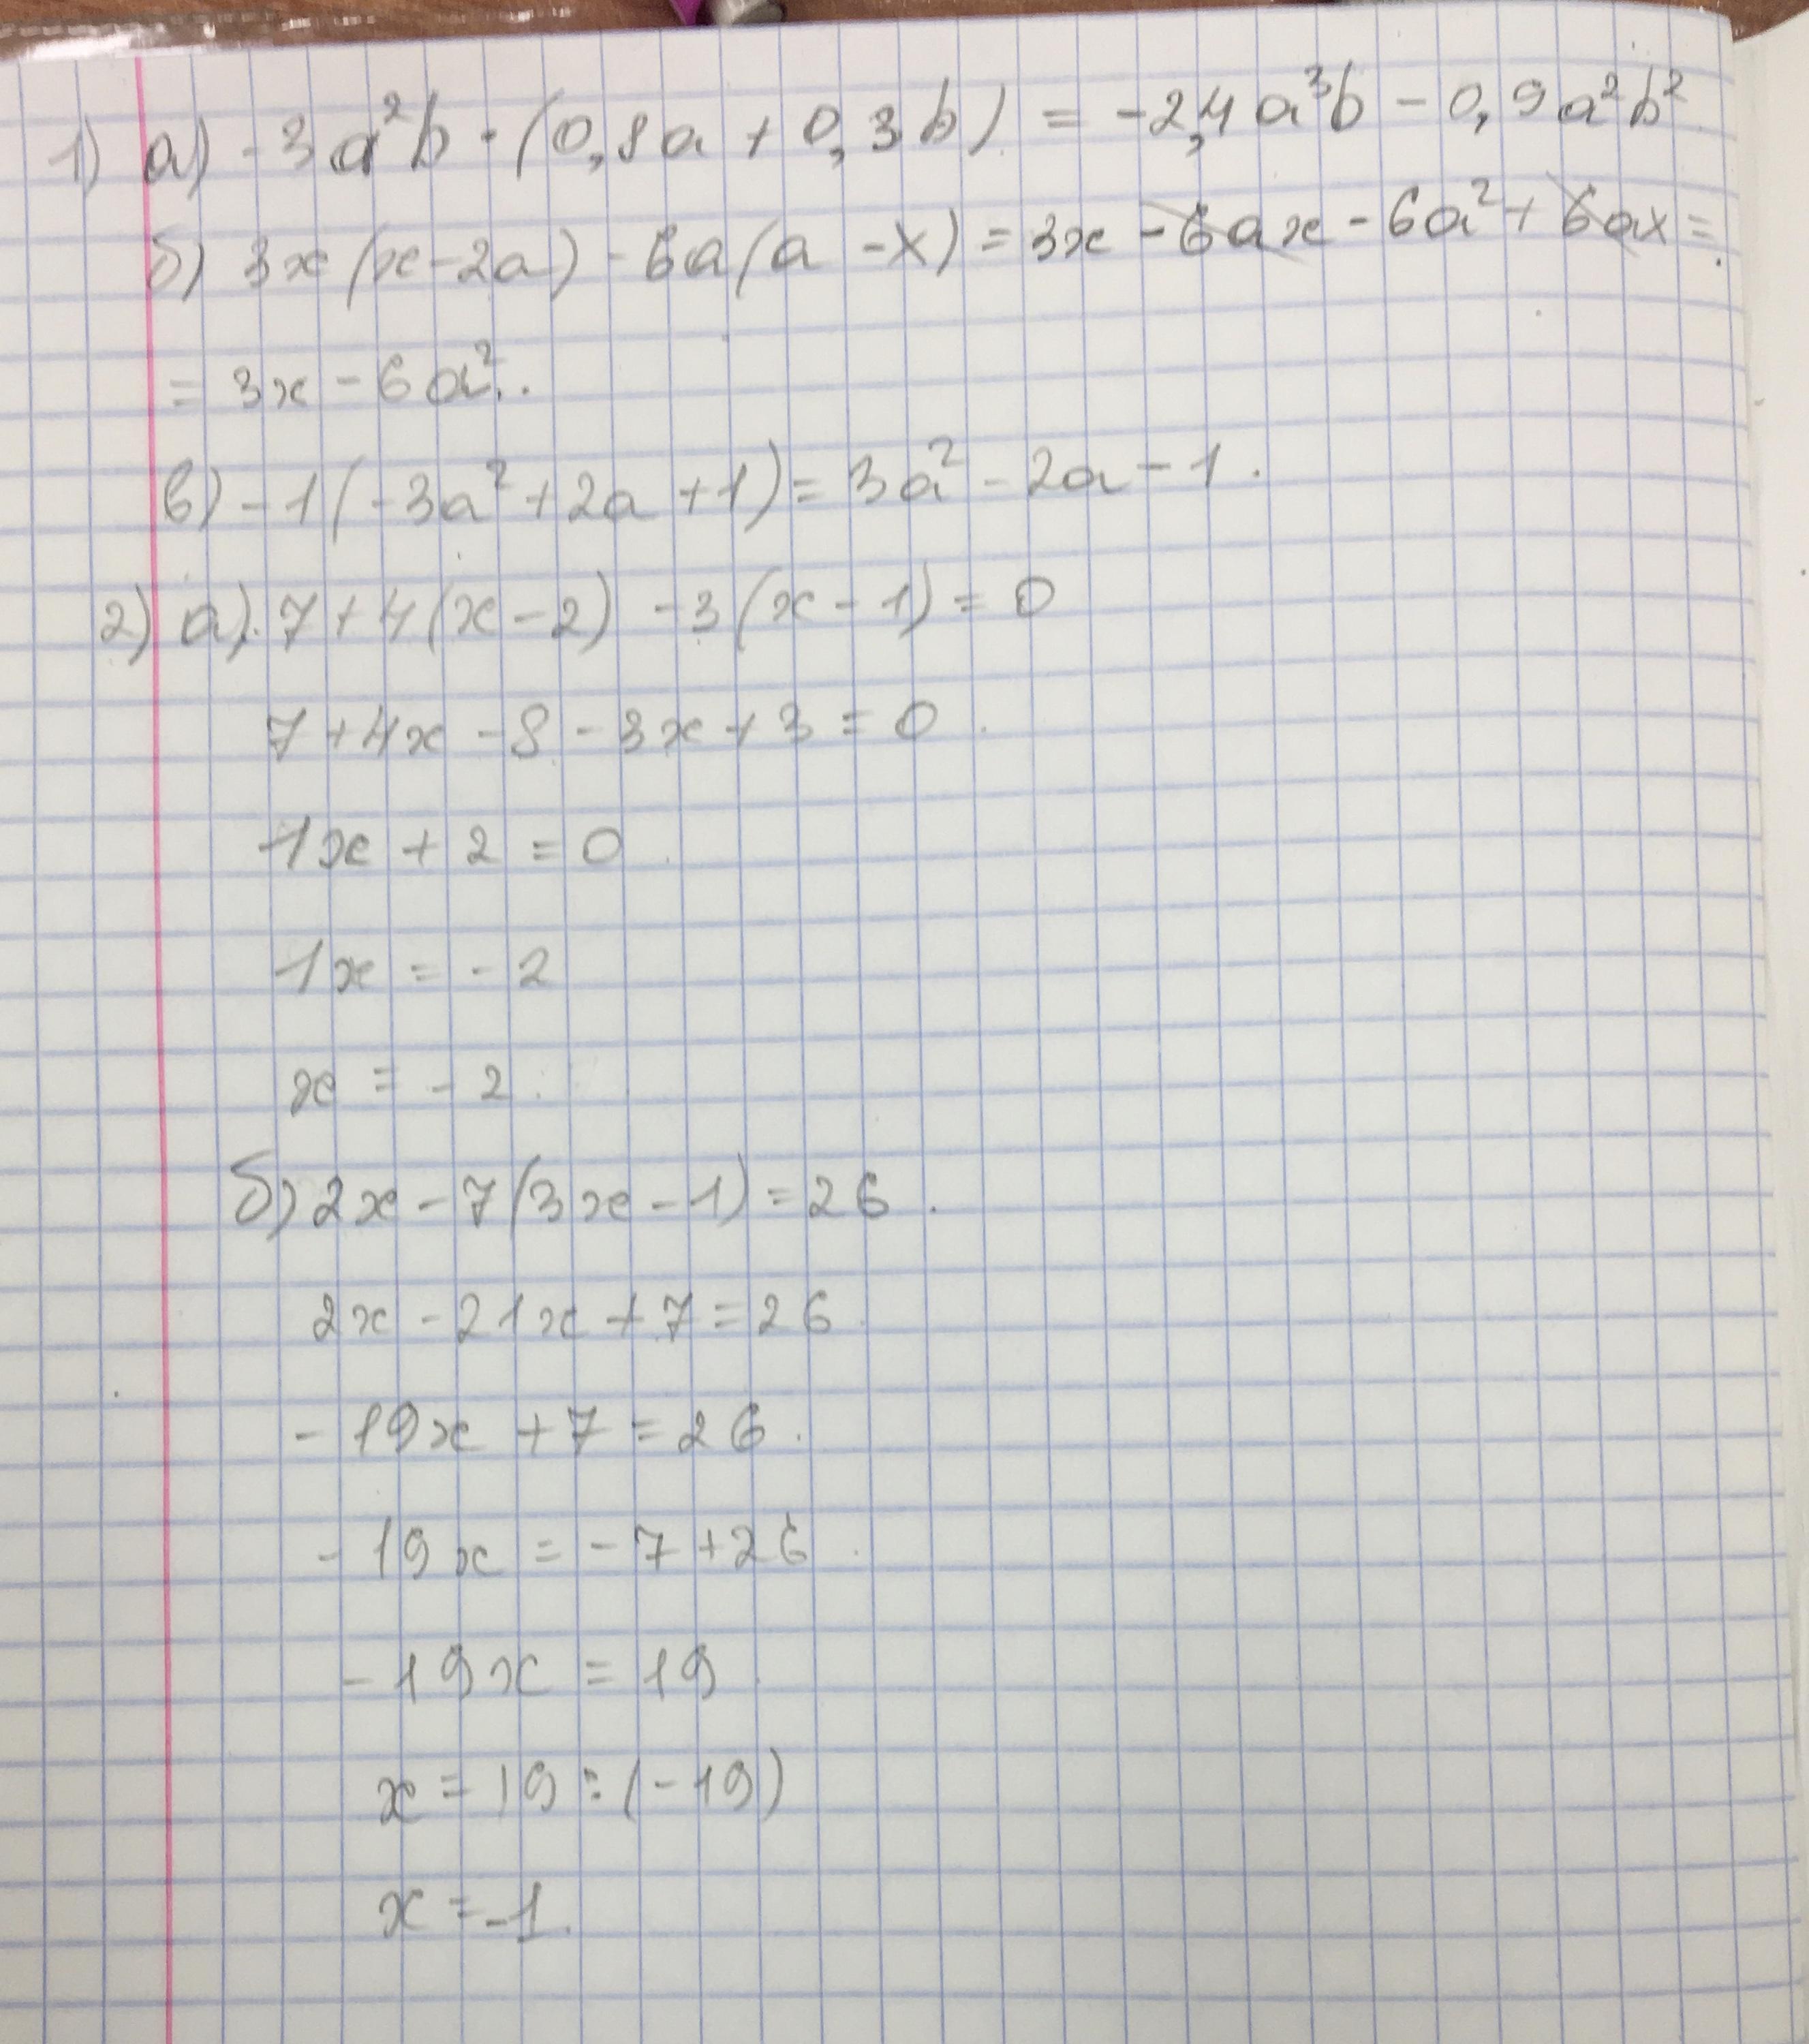 1) а) -3a²b · (0,8a + 0,3b) = -2,4a³b - 0,9a²b²
б) 3x(x-2a) - 6a(a - x) = 3x - 6ax - 6a² + 6ax =
= 3x - 6a².
в) -1(-3a² + 2a + 1) = 3a² - 2a - 1.
2) а). 7 + 4(x - 2) - 3(x - 1) = 0
7 + 4x - 8 - 3x + 3 = 0.
1x + 2 = 0.
1x = -2
x = -2.
б) 2x - 7(3x - 1) = 26.
2x - 21x + 7 = 26.
- 19x + 7 = 26.
- 19x = -7 + 26.
- 19x = 19.
x = 19 : (-19)
x = -1.